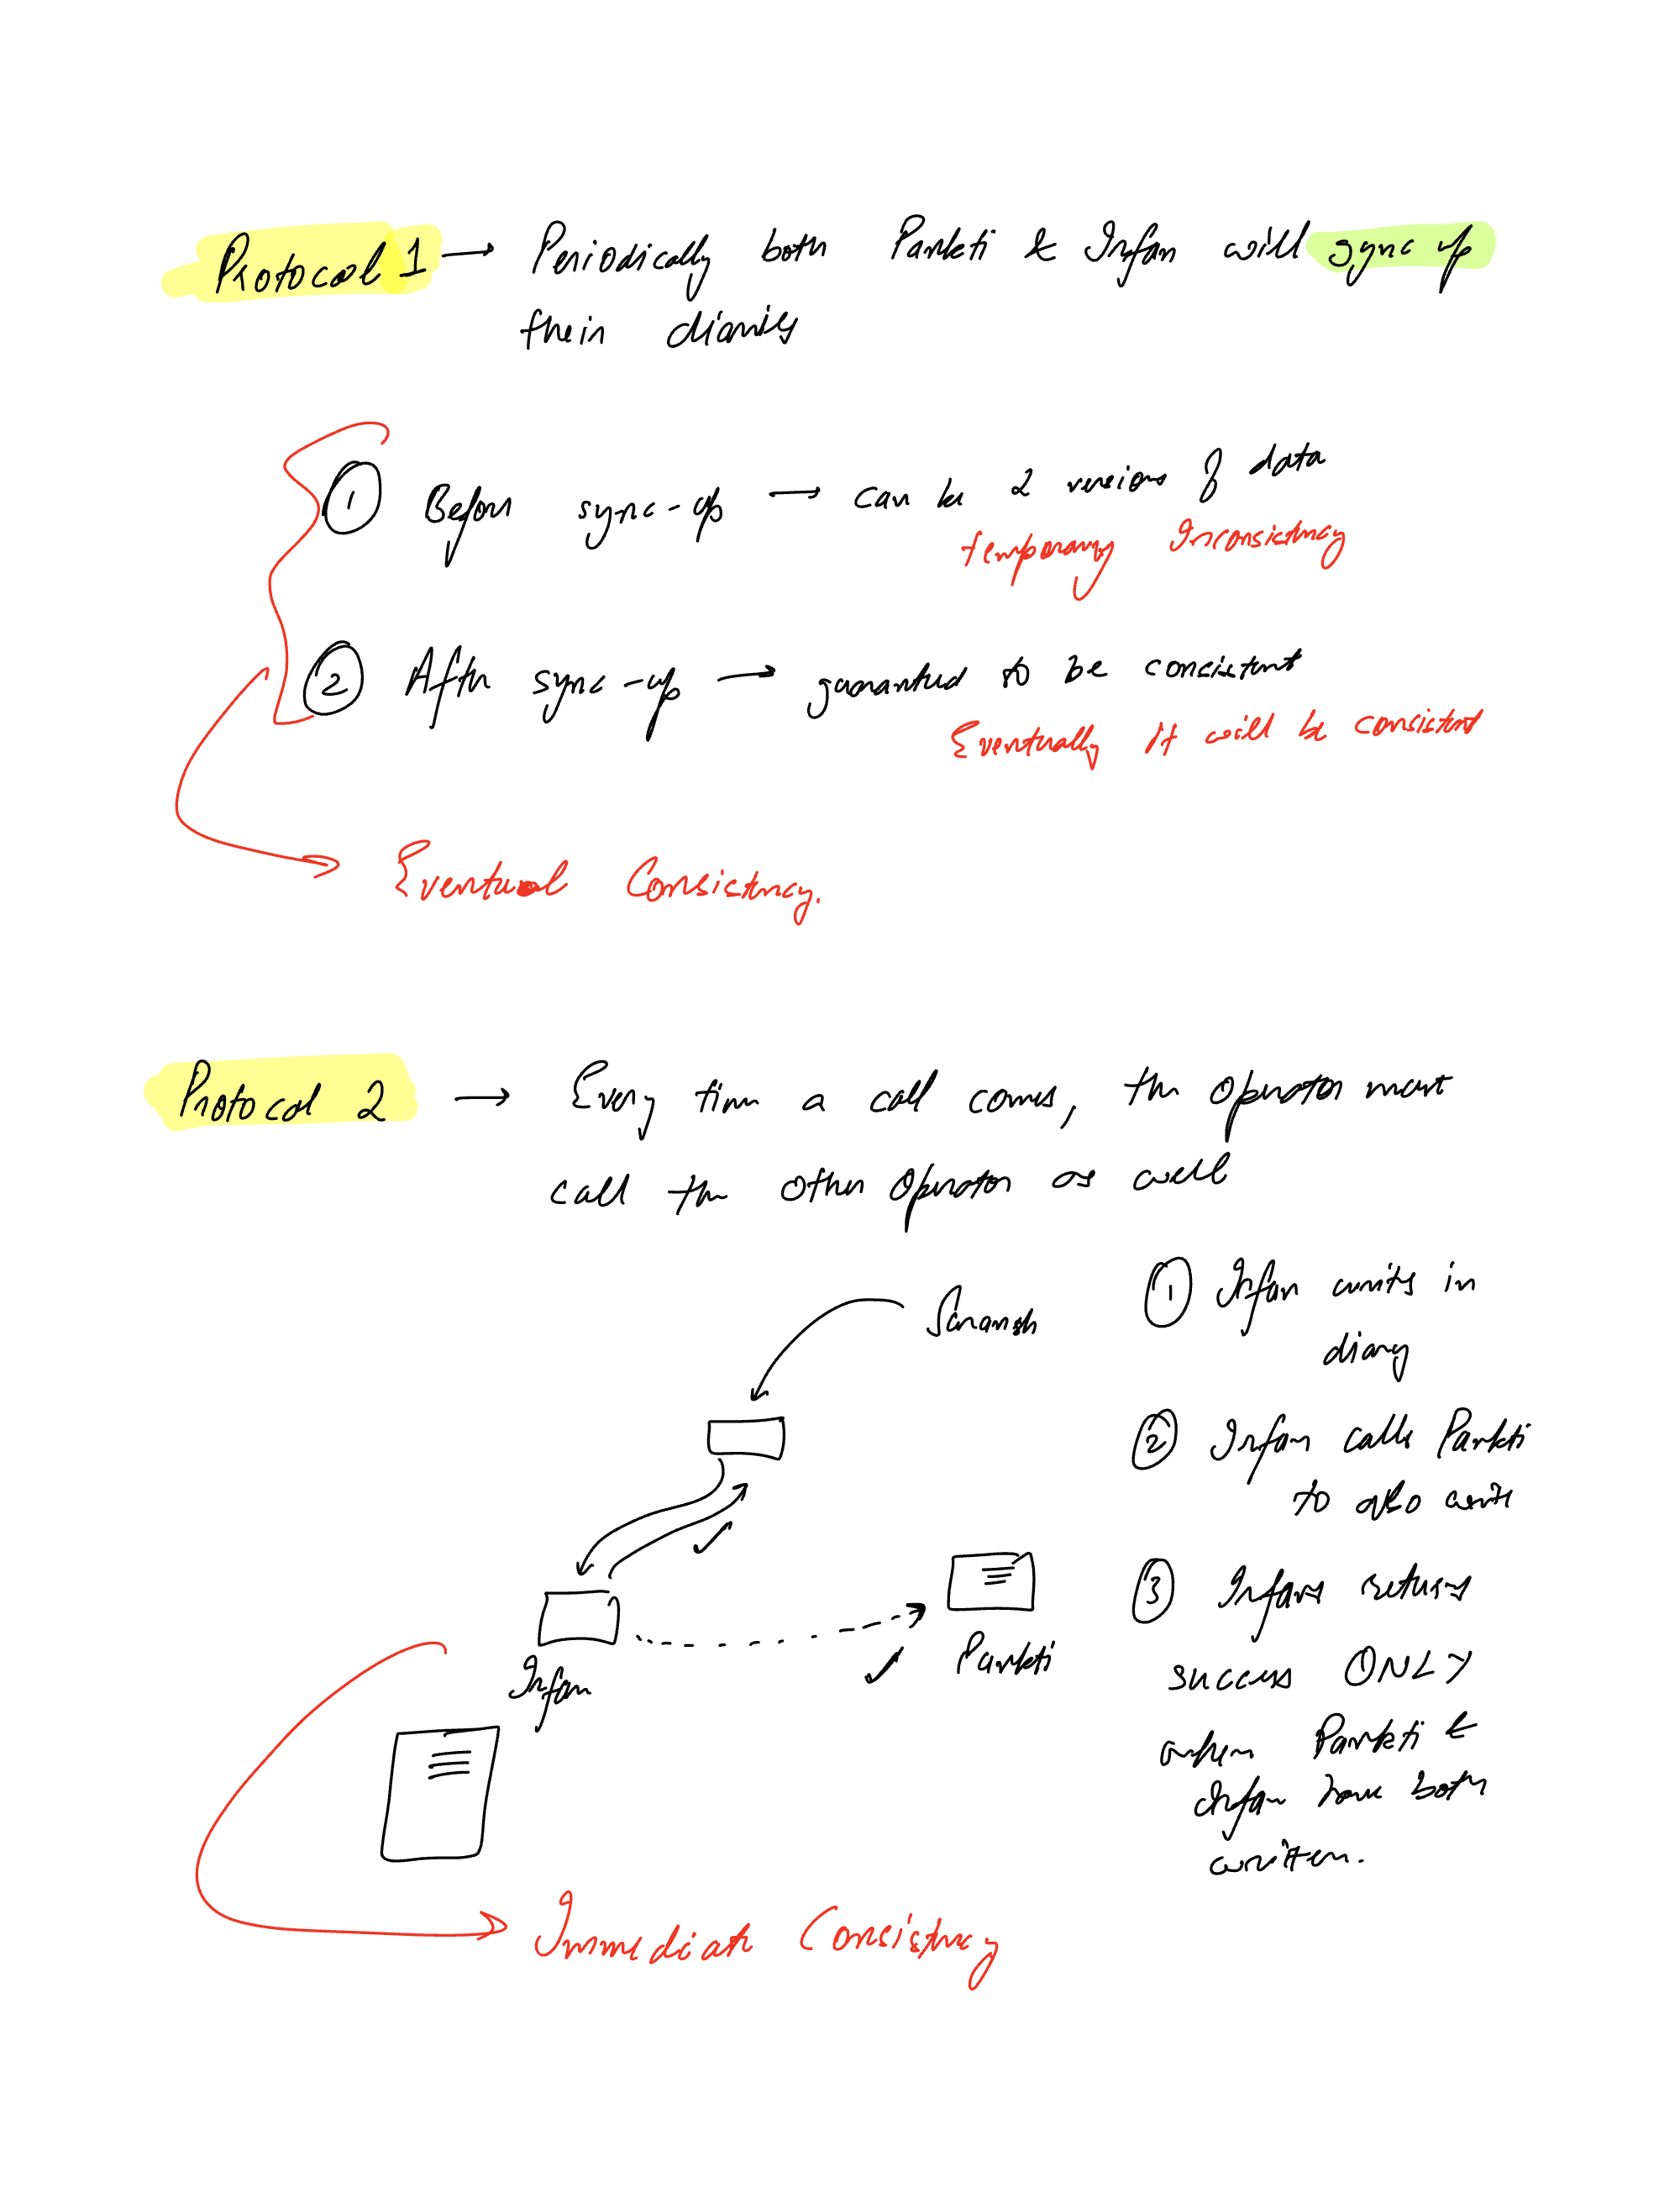 Protocol 1 → Periodically both Pankti & Irfan will sync up
their diaries
① Before sync-up → can be 2 versions of data
temporary Inconsistency
② After sync-up → guaranteed to be consistent
Eventually it will be consistent
Eventual Consistency.
Protocol 2 → Every time a call comes, the operator must
call the other operator as well
Saransh
① Irfan writes in
diary
② Irfan calls Pankti
to also write
③ Irfan returns
success ONLY
when Pankti &
Irfan have both
written.
Pankti
Irfan
Immediate Consistency